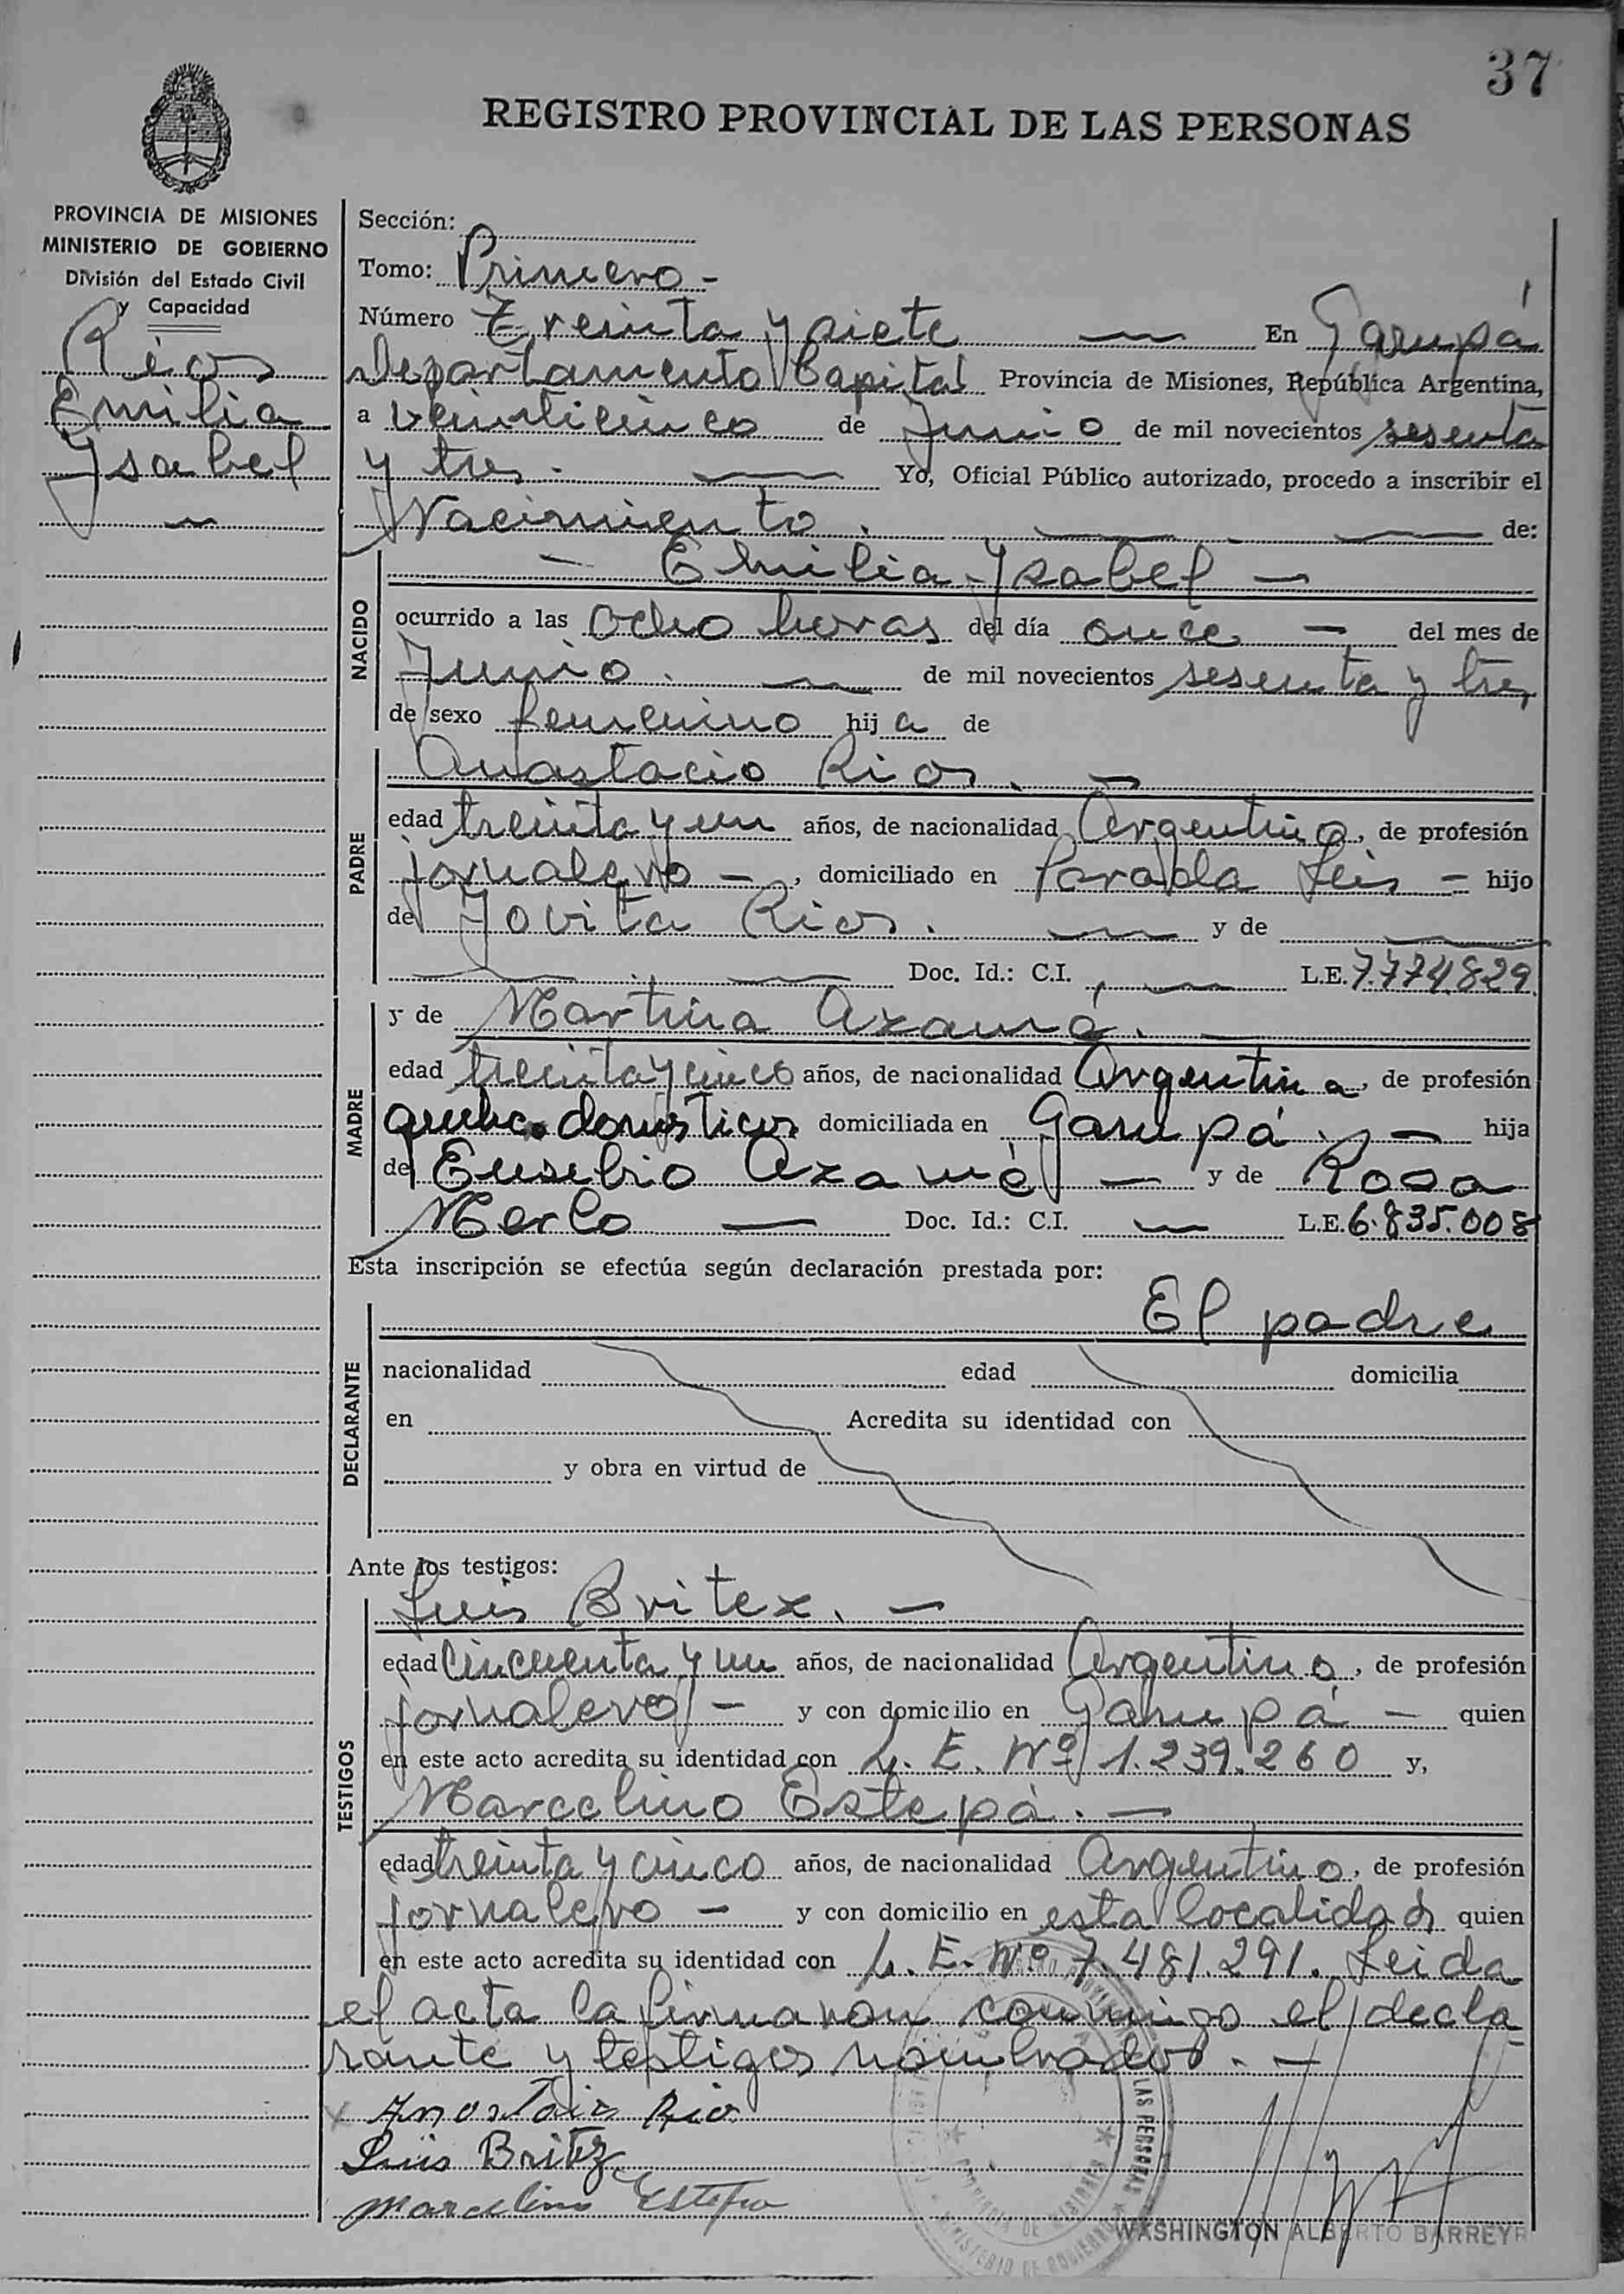 37
REGISTRO PROVINCIAL DE LAS PERSONAS
PROVINCIA DE MISIONES
MINISTERIO DE GOBIERNO
División del Estado Civil
y Capacidad
Rios
Emilia
Ysabel
Sección:
Tomo: Primero -
Número Treinta y siete — En Garupá
Departamento Capital Provincia de Misiones, República Argentina,
a veinticinco de Junio de mil novecientos sesenta
y tres. — Yo, Oficial Público autorizado, procedo a inscribir el
Nacimiento. — — de:
NACIDO
— Emilia Ysabel —
ocurrido a las ocho horas del día once — del mes de
Junio. — de mil novecientos sesenta y tres
de sexo femenino hija de
PADRE
Anastacio Rios. —
edad treinta y un años, de nacionalidad Argentino, de profesión
jornalero —, domiciliado en Parada Leis — hijo
de Jovita Rios. — y de —
— — Doc. Id.: C.I. — L.E. 7.774.829
MADRE
y de Martina Azamá. —
edad treinta y cinco años, de nacionalidad Argentina, de profesión
domésticos domiciliada en Garupá. — hija
de Eusebio Azamé — y de Rosa
Merlo — Doc. Id.: C.I. — L.E. 6.835.008
Esta inscripción se efectúa según declaración prestada por:
DECLARANTE
El padre
nacionalidad edad domicilia
en Acredita su identidad con
y obra en virtud de
Ante los testigos:
TESTIGOS
Luis Britez. —
edad cincuenta y un años, de nacionalidad Argentino, de profesión
jornalero — y con domicilio en Garupá — quien
en este acto acredita su identidad con L. E. Nº 1.239.260 y,
Marcelino Estepá. —
edad treinta y cinco años, de nacionalidad Argentino, de profesión
jornalero — y con domicilio en esta localidad quien
en este acto acredita su identidad con L. E. Nº 7.481.291. Leida
el acta la firmaron conmigo el decla
rante y testigos nombrados. —
Rios
Luis Britez
Marcelino
LAS PERSONAS
PROVINCIA DE MISIONES
MINISTERIO DE GOBIERNO
WASHINGTON ALBERTO BARREYR